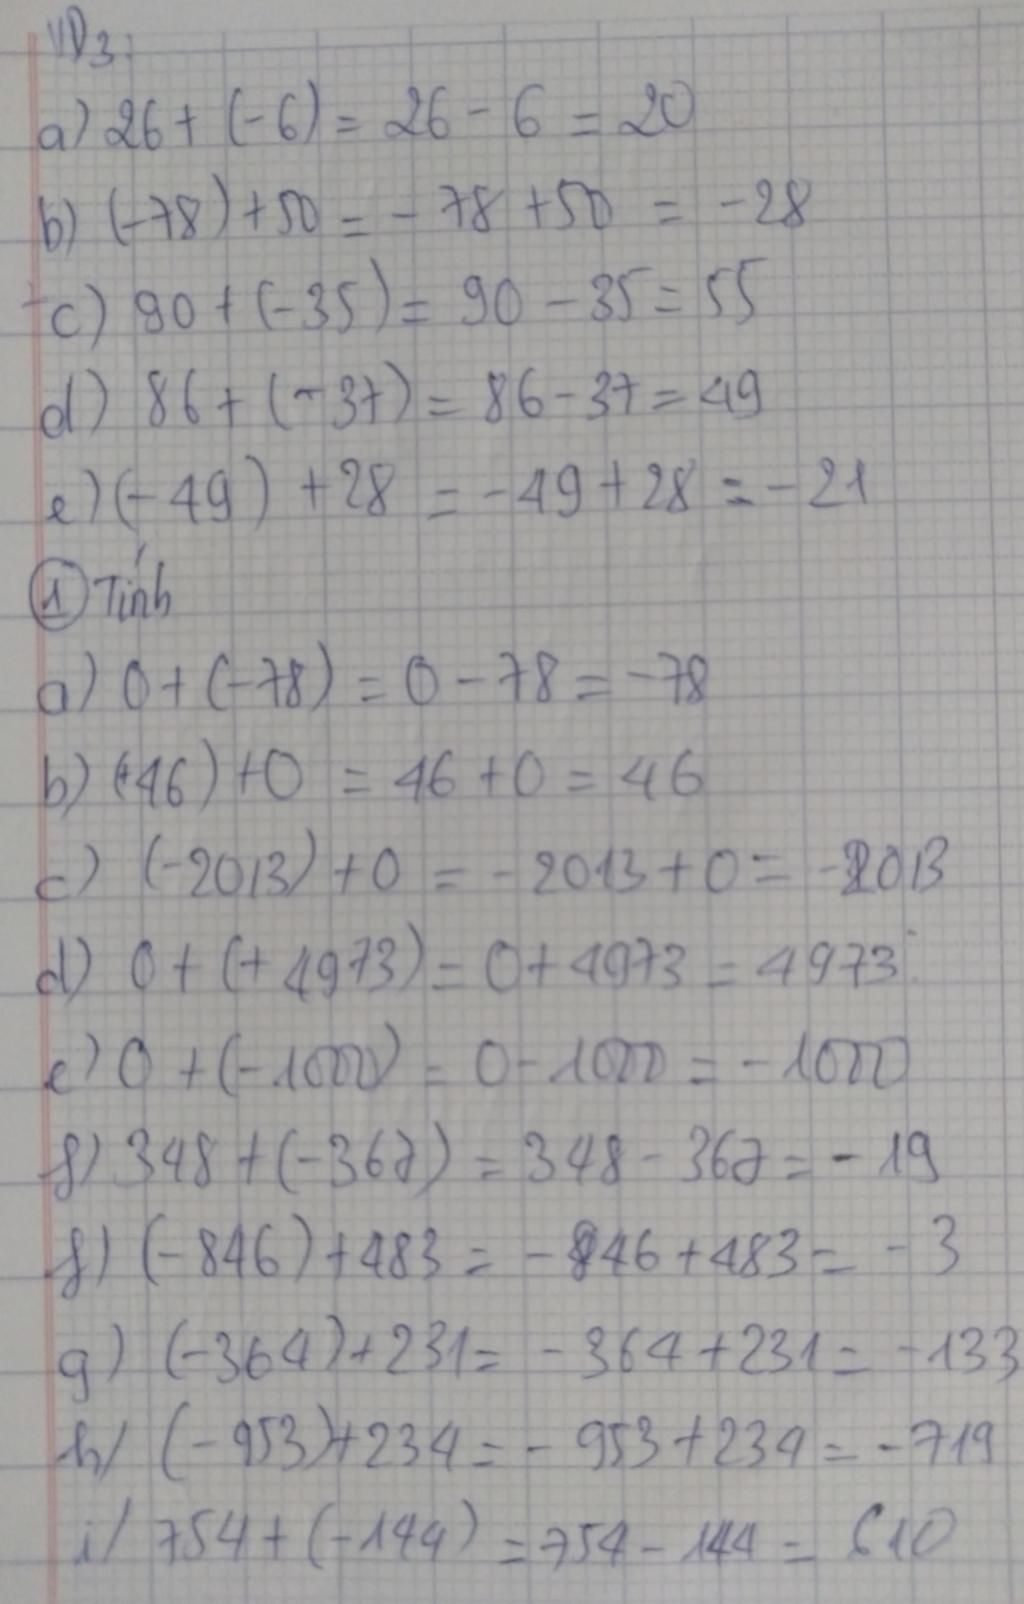 VD3:
a) 26 + (-6) = 26 - 6 = 20
b) (-78) + 50 = - 78 + 50 = -28
c) 90 + (-35) = 90 - 35 = 55
d) 86 + (-37) = 86 - 37 = 49
e) (-49) + 28 = -49 + 28 = -21
① Tính
a) 0 + (-78) = 0 - 78 = -78
b) (+46) + 0 = 46 + 0 = 46
c) (-2013) + 0 = - 2013 + 0 = -2013
d) 0 + (+ 4973) = 0 + 4973 = 4973
e) 0 + (-1000) = 0 - 1000 = -1000
f) 348 + (-367) = 348 - 367 = - 19
f) (-846) + 483 = - 846 + 483 = - 3
g) (-364) + 231 = - 364 + 231 = -133
h/ (-953) + 234 = - 953 + 234 = -719
i/ 754 + (-144) = 754 - 144 = 610